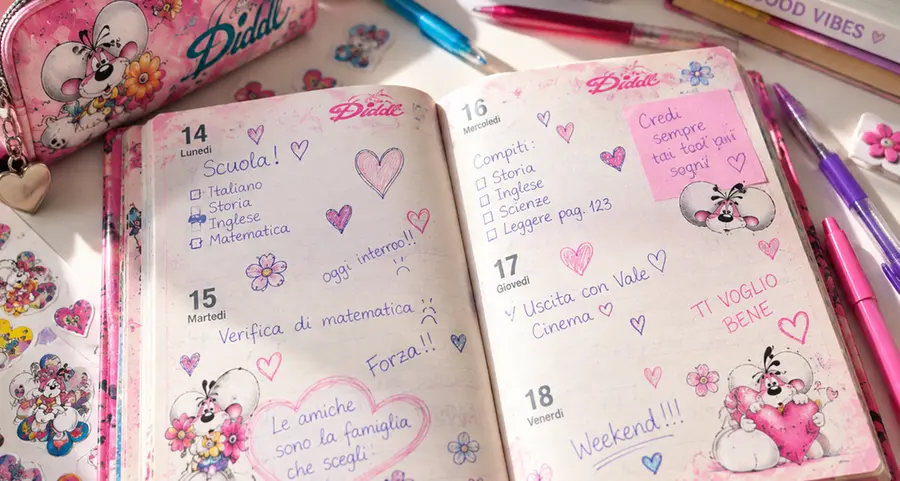 Diddl
GOOD VIBES
14
Lunedì
Diddl
Scuola!
Italiano
Storia
Inglese
Matematica
oggi interroo!!
15
Martedì
Verifica di matematica
Forza!!
Le amiche
sono la famiglia
che scegli.
16
Mercoledì
Diddl
Compiti:
Storia
Inglese
Scienze
Leggere pag. 123
Credi
sempre
sogni
17
Giovedì
Uscita con Vale
Cinema
TI VOGLIO
BENE
18
Venerdì
Weekend!!!